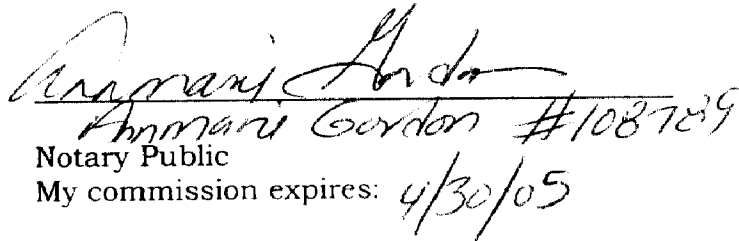 Annmarie Gordon
Annmarie Gordon #108789
Notary Public
My commission expires: 4/30/05